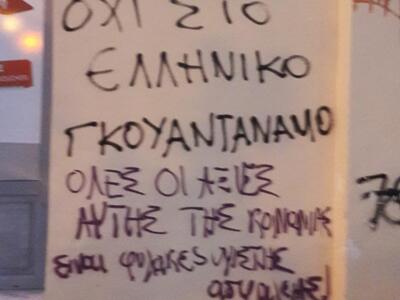 ΟΧΙ ΣΤΟ
ΕΛΛΗΝΙΚΟ
ΓΚΟΥΑΝΤΑΝΑΜΟ
ΟΛΕΣ ΟΙ ΑΞΙΕΣ
ΑΥΤΗΣ ΤΗΣ ΚΟΙΝΩΝΙΑΣ
ειναι φυλακες υψιστης
ασφαλειας!